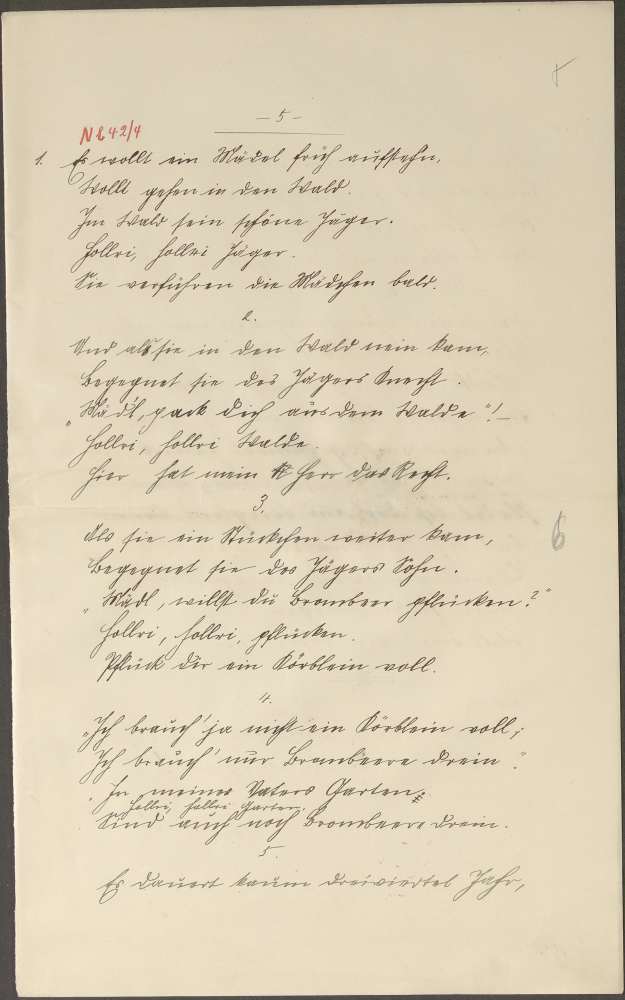 – 5 –
N 642/4
1. Es wollt ein Mädel früh aufstehn,
Wollt gehen in den Wald.
Im Wald sein schöne Jäger.
Hollri, hollri Jäger.
Sie verführen die Mädchen bald.
2.
Und als sie in den Wald nein kam,
Begegnet sie des Jägers Knecht.
„Mädl, pack dich aus dem Walde"! –
Hollri, hollri Walde.
Hier hat mein Herr das Recht.
3.
Als sie ein Stückchen weiter kam,
Begegnet sie des Jägers Sohn.
„Mädl, willst du Brombeer pflücken?"
Hollri, hollri, pflücken.
Pflück dir ein Körblein voll.
4.
„Ich brauch' ja nicht ein Körblein voll;
Ich brauch' nur Brombeere drein".
„In meines Vaters Garten,
Hollri, hollri Garten.
Sind auch noch Brombeere drein.
5.
Es dauert kaum dreiviertel Jahr,
6